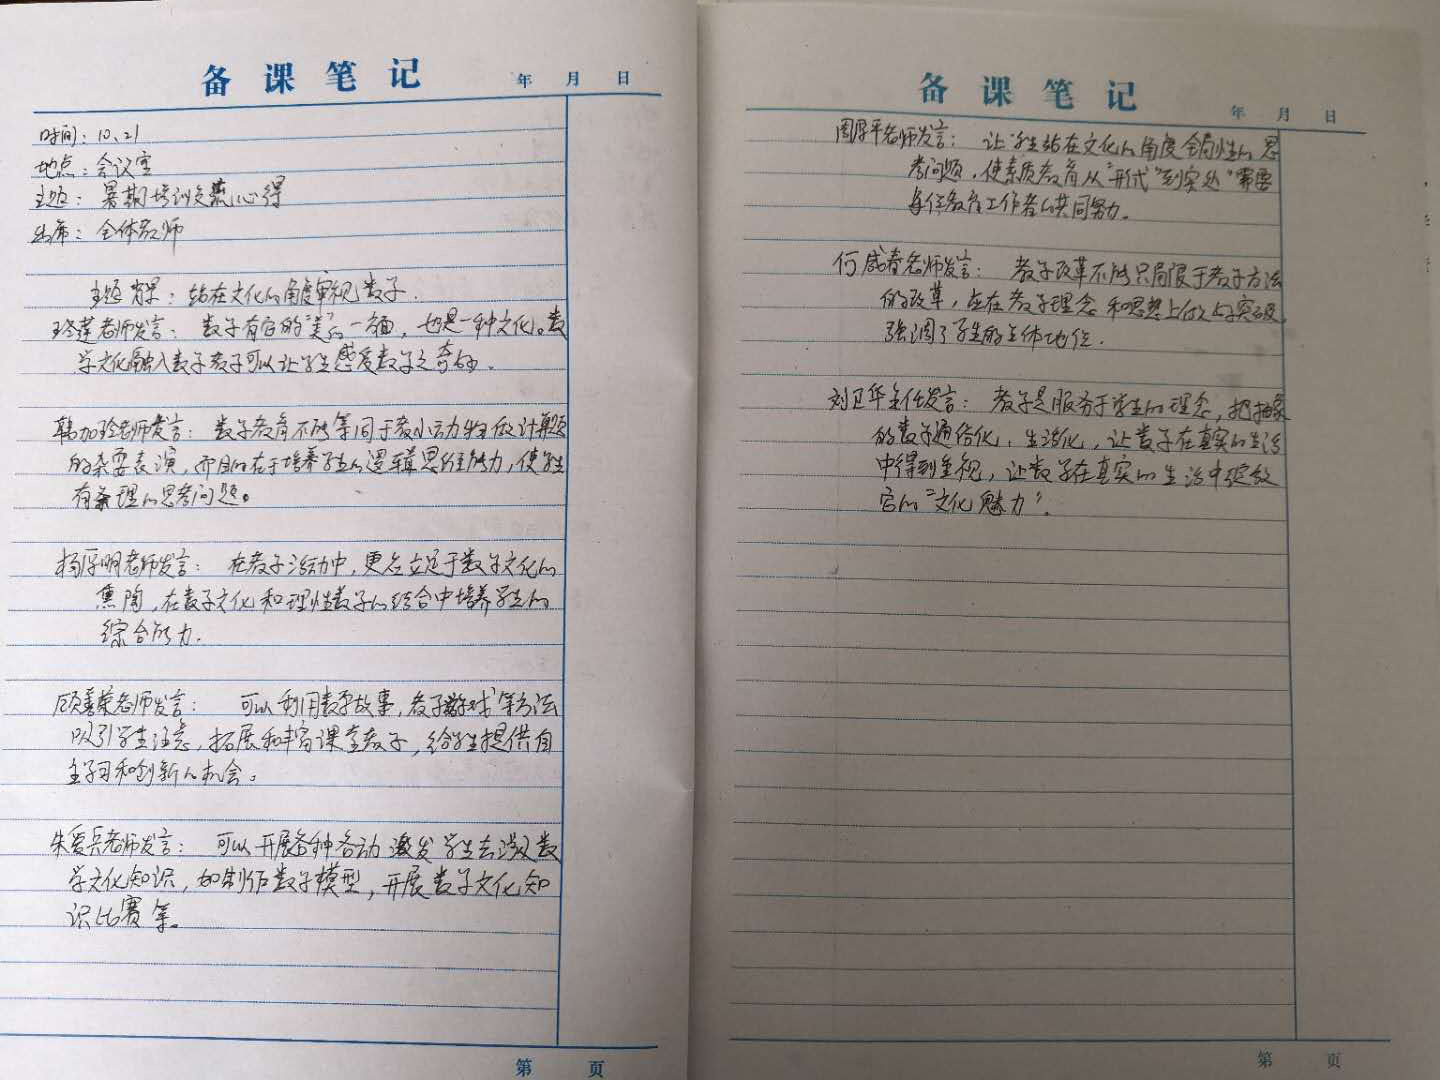 备课笔记 年 月 日
时间：10、21
地点：会议室
主题：暑期培训交流心得
出席：全体教师
主题背景：站在文化的角度审视数学.
老师发言：数学有它的“美”的一面，也是一种文化。数
学文化融入数学教学可以让学生感受数学之奇的.
韩加玲老师发言：数学教育不能等同于教小动物做计算题
的杂耍表演，而目的在于培养学生的逻辑思维能力，使学生
有条理的思考问题。
杨厚明老师发言：在教学活动中，更应立足于数学文化的
熏陶，在数学文化和理性数学的结合中培养学生的
综合能力.
顾善荣老师发言：可以利用数学故事，数学游戏等方法
吸引学生注意，拓展和丰富课堂教学，给学生提供自
主学习和创新的机会。
朱爱兵老师发言：可以开展各种活动激发学生去涉及数
学文化知识，如制作数学模型，开展数学文化知
识比赛等。
第 页
备课笔记 年 月 日
周厚平老师发言：让学生站在文化的角度全局性的思
考问题，使素质教育从“形式”到实处“需要
每位教育工作者的共同努力.
何成春老师发言：教学改革不能只局限于教学方法
的改革，应在教学理念和思想上付之与突破，
强调了学生的主体地位.
刘卫华主任发言：教学是服务于学生的理念，把抽象
的数学通俗化，生活化，让数学在真实的生活
中得到重视，让数学在真实的生活中绽放
它的“文化魅力”.
第 页